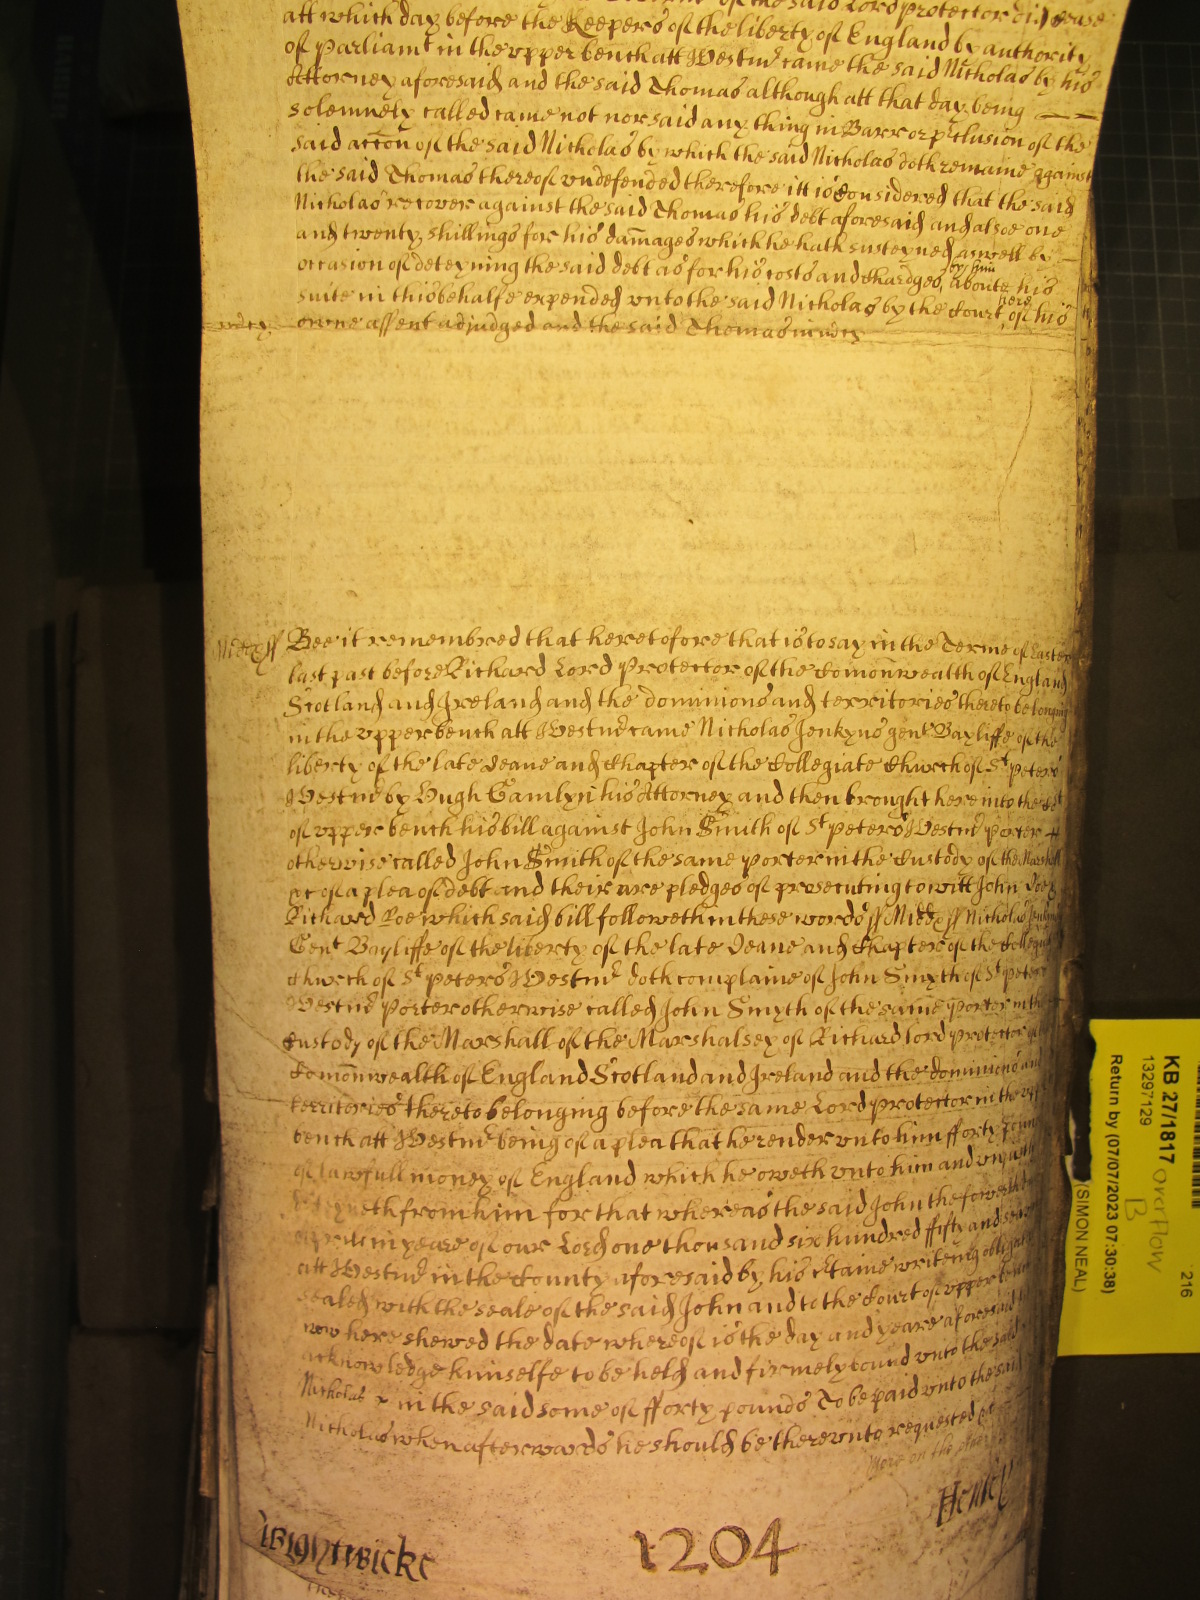 of the said Lord protector
att which day before the Keepers of the liberty of England by authority
of Parliamt in the vpper bench att Westmr came the said Nicholas by his
Attorney aforesaid and the said Thomas although att that day being
solemnely called came not nor said any thing in Barr or pclusion of the
said accon of the said Nicholas by which the said Nicholas doth remaine against
the said Thomas thereof vndefended therefore itt is Considered that the said
Nicholas recover against the said Thomas his debt aforesaid and alsoe one
and twenty shillings for his damages which he hath susteyned aswell by
occasion of deteyning the said debt as for his costs and Chardges by him about his
suite in this behalfe expended vnto the said Nicholas by the Court here of his
owne assent adjudged and the said Thomas in mcy
Middx ss Bee it remembred that heretofore that is to say in the Terme of Easter
last past before Richard Lord Protector of the Comonwealth of England
Scotland and Ireland and the dominions and territories thereto belonging
in the vpper bench att Westmr came Nicholas Jenkyns gent Bayliffe of the
liberty of the late Deane and Chapter of the Collegiate Church of St peters
Westmr by Hugh Tamlyn his Attorney and then brought here into the Cot
of vpper bench his bill against John Smith of St peters Westmr porter
otherwise called John Smith of the same porter in the Custody of the Marshall
&c of a plea of debt and their are pledges of prosecuting to witt John Doe &
Richard Roe which said bill followeth in these words ss Middx ss Nicholas Jenkins
Gent Bayliffe of the liberty of the late Deane and Chapter of the Collegiat
Church of St peters Westmr doth complaine of John Smyth of St peters
Westmr porter otherwise called John Smyth of the same porter in the
Custody of the Marshall of the Marshalsey of Richard lord protector
Comonwealth of England Scotland and Ireland and the dominions and
territories thereto belonging before the same Lord protector in the vpp
bench att Westmr being of a plea that he render vnto him fforty pounds
of lawfull money of England which he oweth vnto him and vnjustly
deteyneth from him for that whereas the said John the
in yeare of our Lord one thousand six hundred ffifty and
att Westmr in the County aforesaid by his Ctaine writeing obligat
sealed with the seale of the said John and to the Court of vpper bench
now here shewed the date whereof is the day and yeare aforesaid
acknowledge himselfe to be held and firmely bound vnto the said
Nicholas in the said some of fforty pounds To be paid vnto the said
Nicholas when afterwards he should be therevnto requested
More on the
Henley
Wightwicke
1204
KB 27/1817 overflow
B
216
13297129
Return by (07/07/2023 07:30:38)
(SIMON NEAL)